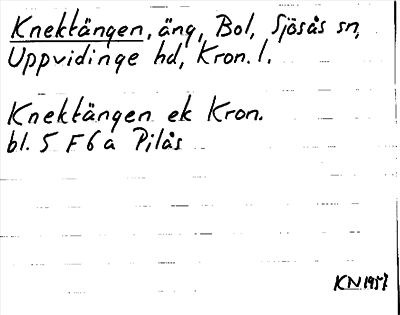 Knektängen, äng, Bol, Sjösås sn,
Uppvidinge hd, Kron. l.
Knektängen ek Kron.
bl. 5 F 6 a Pilås
KN 1957